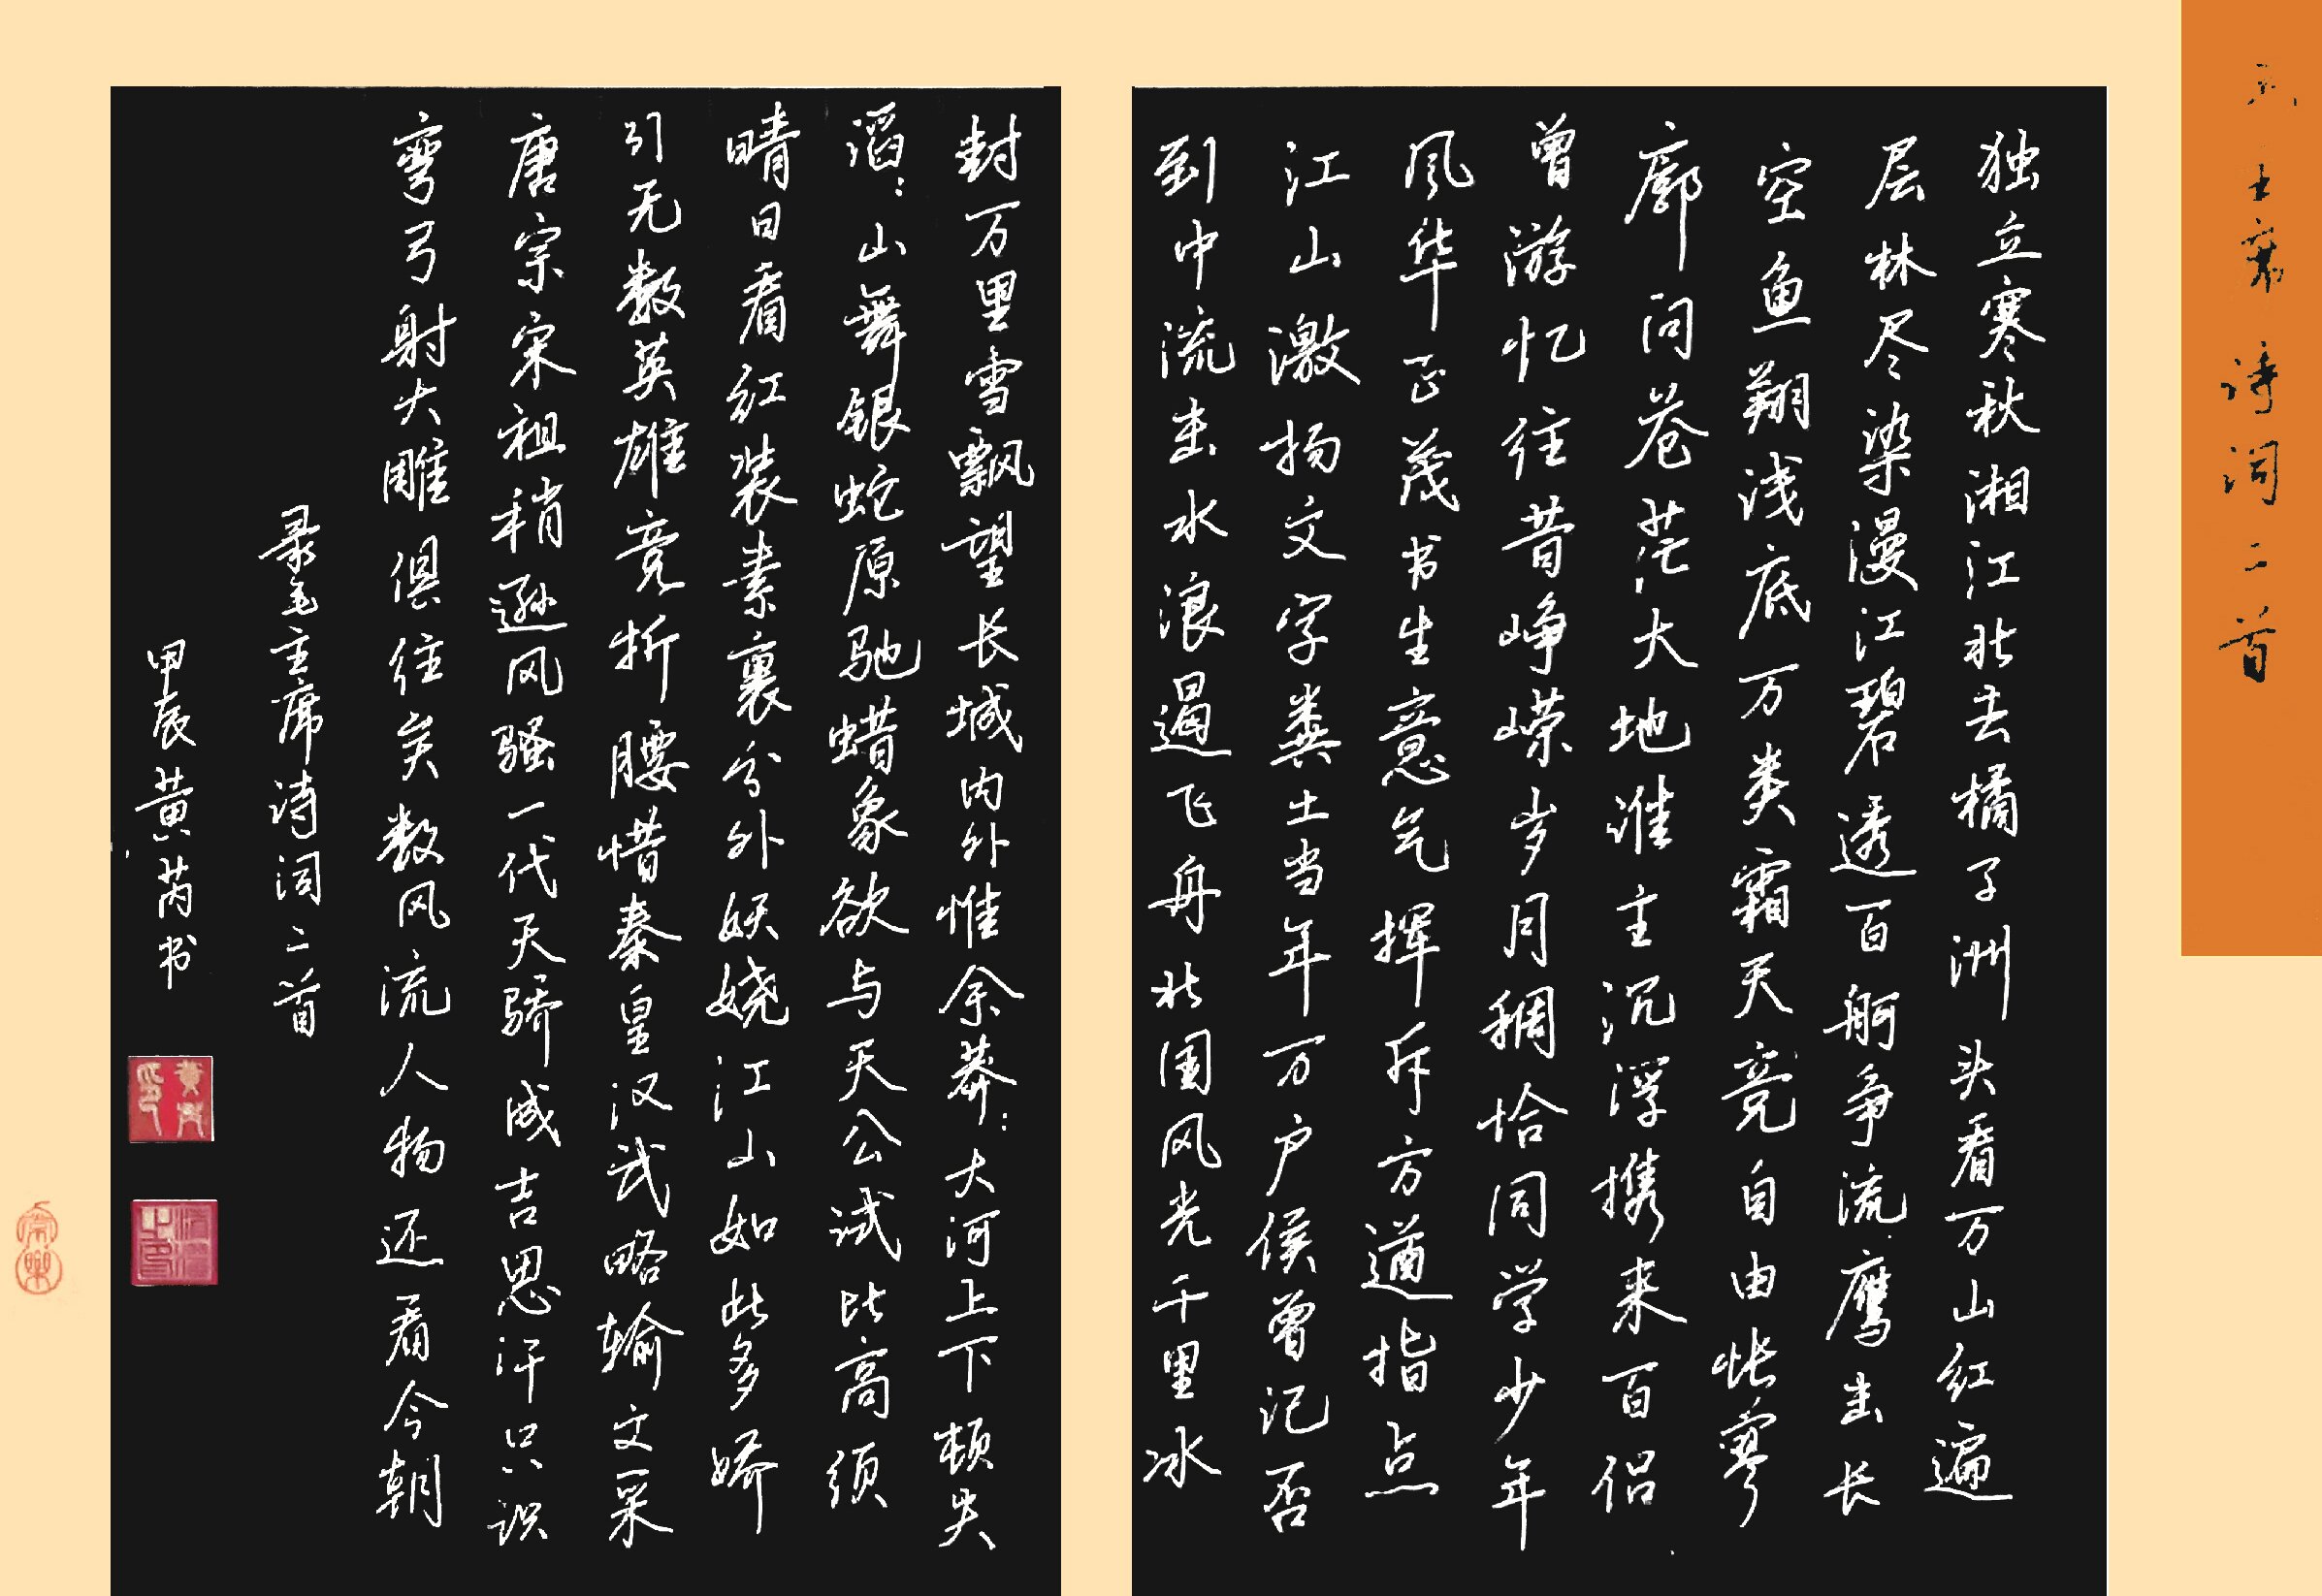 毛主席诗词二首
独立寒秋湘江北去橘子洲头看万山红遍
层林尽染漫江碧透百舸争流鹰击长
空鱼翔浅底万类霜天竞自由怅寥
廓问苍茫大地谁主沉浮携来百侣
曾游忆往昔峥嵘岁月稠恰同学少年
风华正茂书生意气挥斥方遒指点
江山激扬文字粪土当年万户侯曾记否
到中流击水浪遏飞舟北国风光千里冰
封万里雪飘望长城内外惟余莽:大河上下顿失
滔:山舞银蛇原驰蜡象欲与天公试比高须
晴日看红装素裹分外妖娆江山如此多娇
引无数英雄竞折腰惜秦皇汉武略输文采
唐宗宋祖稍逊风骚一代天骄成吉思汗只识
弯弓射大雕俱往矣数风流人物还看今朝
录毛主席诗词二首
甲辰黄芮书